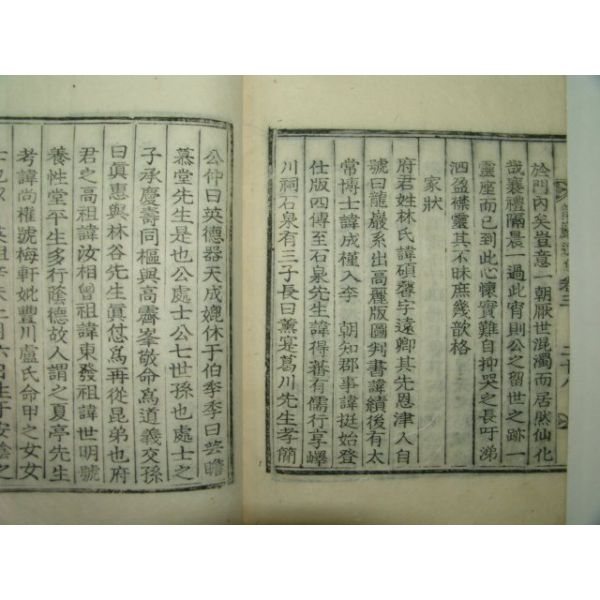 於門內矣豈意一朝厭世混濁而居然仙化
哉襄禮隔晨一過此宵則公之留世之跡一
靈座而已到此心懷實難自抑哭之長吁涕
泗盈襟靈其不昧庶幾歆格
家狀
府君姓林氏諱碩馨字遠卿其先恩津人自
號曰龍巖系出高麗版圖判書諱績後有太
常博士諱成槿入李 朝知郡事諱挺始登
仕版四傳至石泉先生諱得蕃有儒行享嶧
川祠石泉有三子長曰薰寔葛川先生孝簡
公仲曰英德器天成媲休于伯季季曰芸瞻
慕堂先生是也公處士公七世孫也處士之
子承慶壽同樞與高霽峯敬命爲道義交孫
曰眞惠與林谷先生眞怤爲再從昆弟也府
君之高祖諱汝相曾祖諱東發祖諱世明號
養性堂平生多行蔭德故人謂之夏亭先生
考諱尚權號梅軒妣豐川盧氏命甲之女女
卷三 二十八